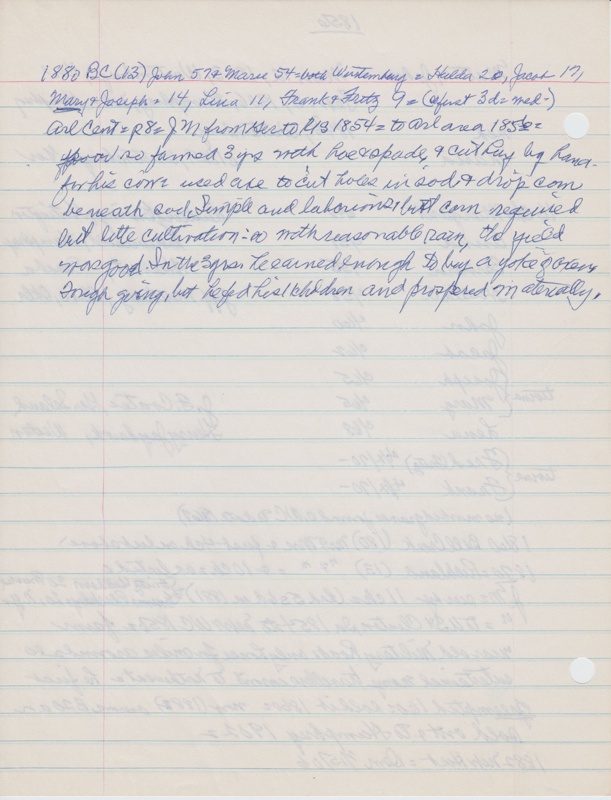 1880 BC (13) John 57 + Marie 54 = both Wurtemburg = Hulda 20, Jacob 17,
Mary + Joseph = 14, Lina 11, Frank + Fritz 9 = (
Arl Cent = p 8 = J M from Ger to 1854 = to Arl area 185
poor so farmed 3 yrs with hoe + spade, + cut hay by hand-
for his cow = used axe to cut holes in sod + drop corn
beneath sod. Simple and laborious, but corn required
but litte cultivation - so with reasonable rain, the yield
was good. In the 3 yrs he earned enough to buy a yoke of oxen,
Tough going, but he fed his children and prospered materially.